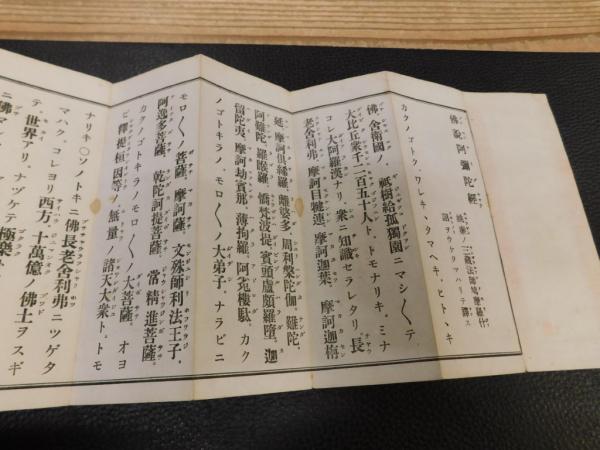 佛說阿彌陀經
姚秦ノ三藏法師鳩摩羅什
詔ヲウケタマハリテ譯ス
カクノゴトク、ワレキヽタマヘキ、ヒトヽキ
佛、舍衞國ノ、祇樹給孤獨園ニマシ〱テ、
大比丘衆千二百五十人ト、トモナリキ、ミナ
コレ大阿羅漢ナリ、衆ニ知識セラレタリ、長
老舍利弗、摩訶目犍連、摩訶迦葉、摩訶迦栴
延、摩訶俱絺羅、離婆多、周利槃陀伽、難陀、
阿難陀、羅睺羅、憍梵波提、賓頭盧頗羅墮、迦
留陀夷、摩訶劫賓那、薄拘羅、阿㝹樓駄、カク
ノゴトキラノ、モロ〱ノ大弟子、ナラビニ
モロ〱ノ菩薩、摩訶薩、文殊師利法王子、
阿逸多菩薩、乾陀訶提菩薩、常精進菩薩、
カクノゴトキラノモロ〱ノ大菩薩、オヨ
ビ釋提桓因等ノ無量ノ諸天大衆ト、トモ
ナリキ〇ソノトキニ佛、長老舍利弗ニツゲタ
マハク、コレヨリ西方、十萬億ノ佛土ヲスギ
テ、世界アリ、ナヅケテ極樂ト